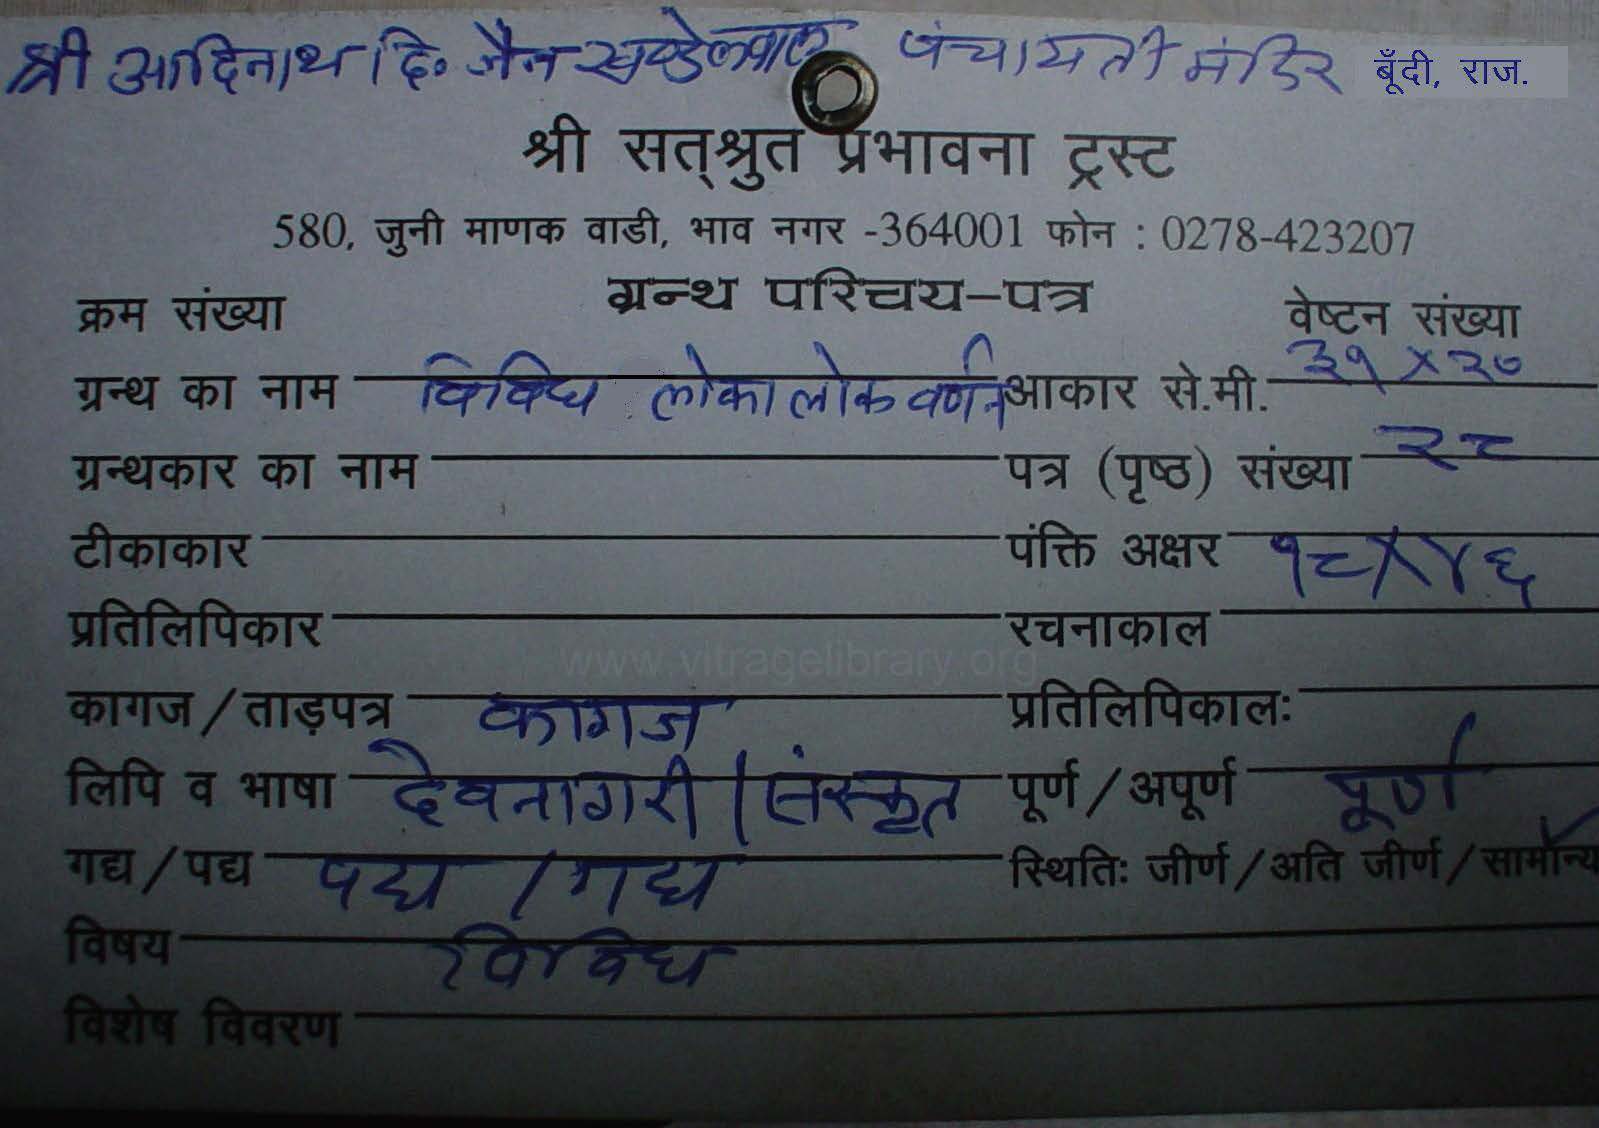 श्री आदिनाथ दि. जैन खण्डेलवाल पंचायती मंदिर बूँदी, राज.
श्री सत्श्रुत प्रभावना ट्रस्ट
580, जुनी माणक वाडी, भाव नगर -364001 फोन : 0278-423207
ग्रन्थ परिचय-पत्र
क्रम संख्या वेष्टन संख्या
ग्रन्थ का नाम विविध लोकालोक वर्णन आकार से.मी. ३१ x २७
ग्रन्थकार का नाम पत्र (पृष्ठ) संख्या २८
टीकाकार पंक्ति अक्षर १८ x ४६
प्रतिलिपिकार रचनाकाल
www.vitragelibrary.org
कागज / ताड़पत्र कागज प्रतिलिपिकालः
लिपि व भाषा देवनागरी / संस्कृत पूर्ण / अपूर्ण पूर्ण
गद्य / पद्य पद्य / गद्य स्थितिः जीर्ण / अति जीर्ण / सामान्य
विषय विविध
विशेष विवरण